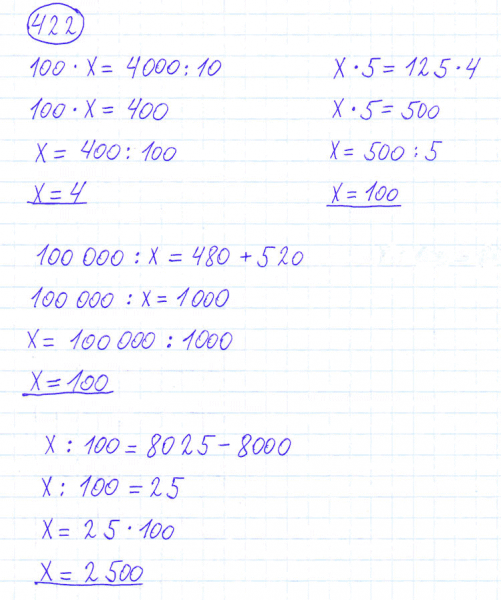 422
100 · x = 4000 : 10
100 · x = 400
x = 400 : 100
x = 4
x · 5 = 125 · 4
x · 5 = 500
x = 500 : 5
x = 100
100 000 : x = 480 + 520
100 000 : x = 1000
x = 100 000 : 1000
x = 100
x : 100 = 8025 - 8000
x : 100 = 25
x = 25 · 100
x = 2 500